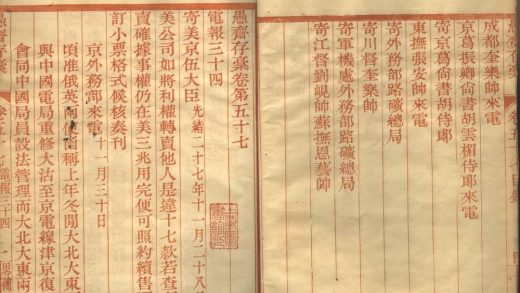 成都奎樂帥來電
京葛振卿尚書胡雲楣侍郎來電
寄京葛尚書胡侍郎
東撫張安帥來電
寄外務部路礦總局
寄川督奎樂帥
寄軍機處外務部路礦總局
寄江督劉峴帥蘇撫恩藝帥
愚齋存稾卷第五十七
電報三十四
寄美京伍大臣 光緒二十七年十一月二十八
美公司如將利權轉賣他人是違十七款若查
賣確據事權仍在美三兆用完便可照約續售
訂小票格式候核奏刊
京外務部來電 十一月三十日
頃准俄英 稱上年冬間大北大東
與中國電局重修大沽至京電線津京復
會同中國局員設法管理而大北大東兩
存稾 卷五十七 電報三十四 一